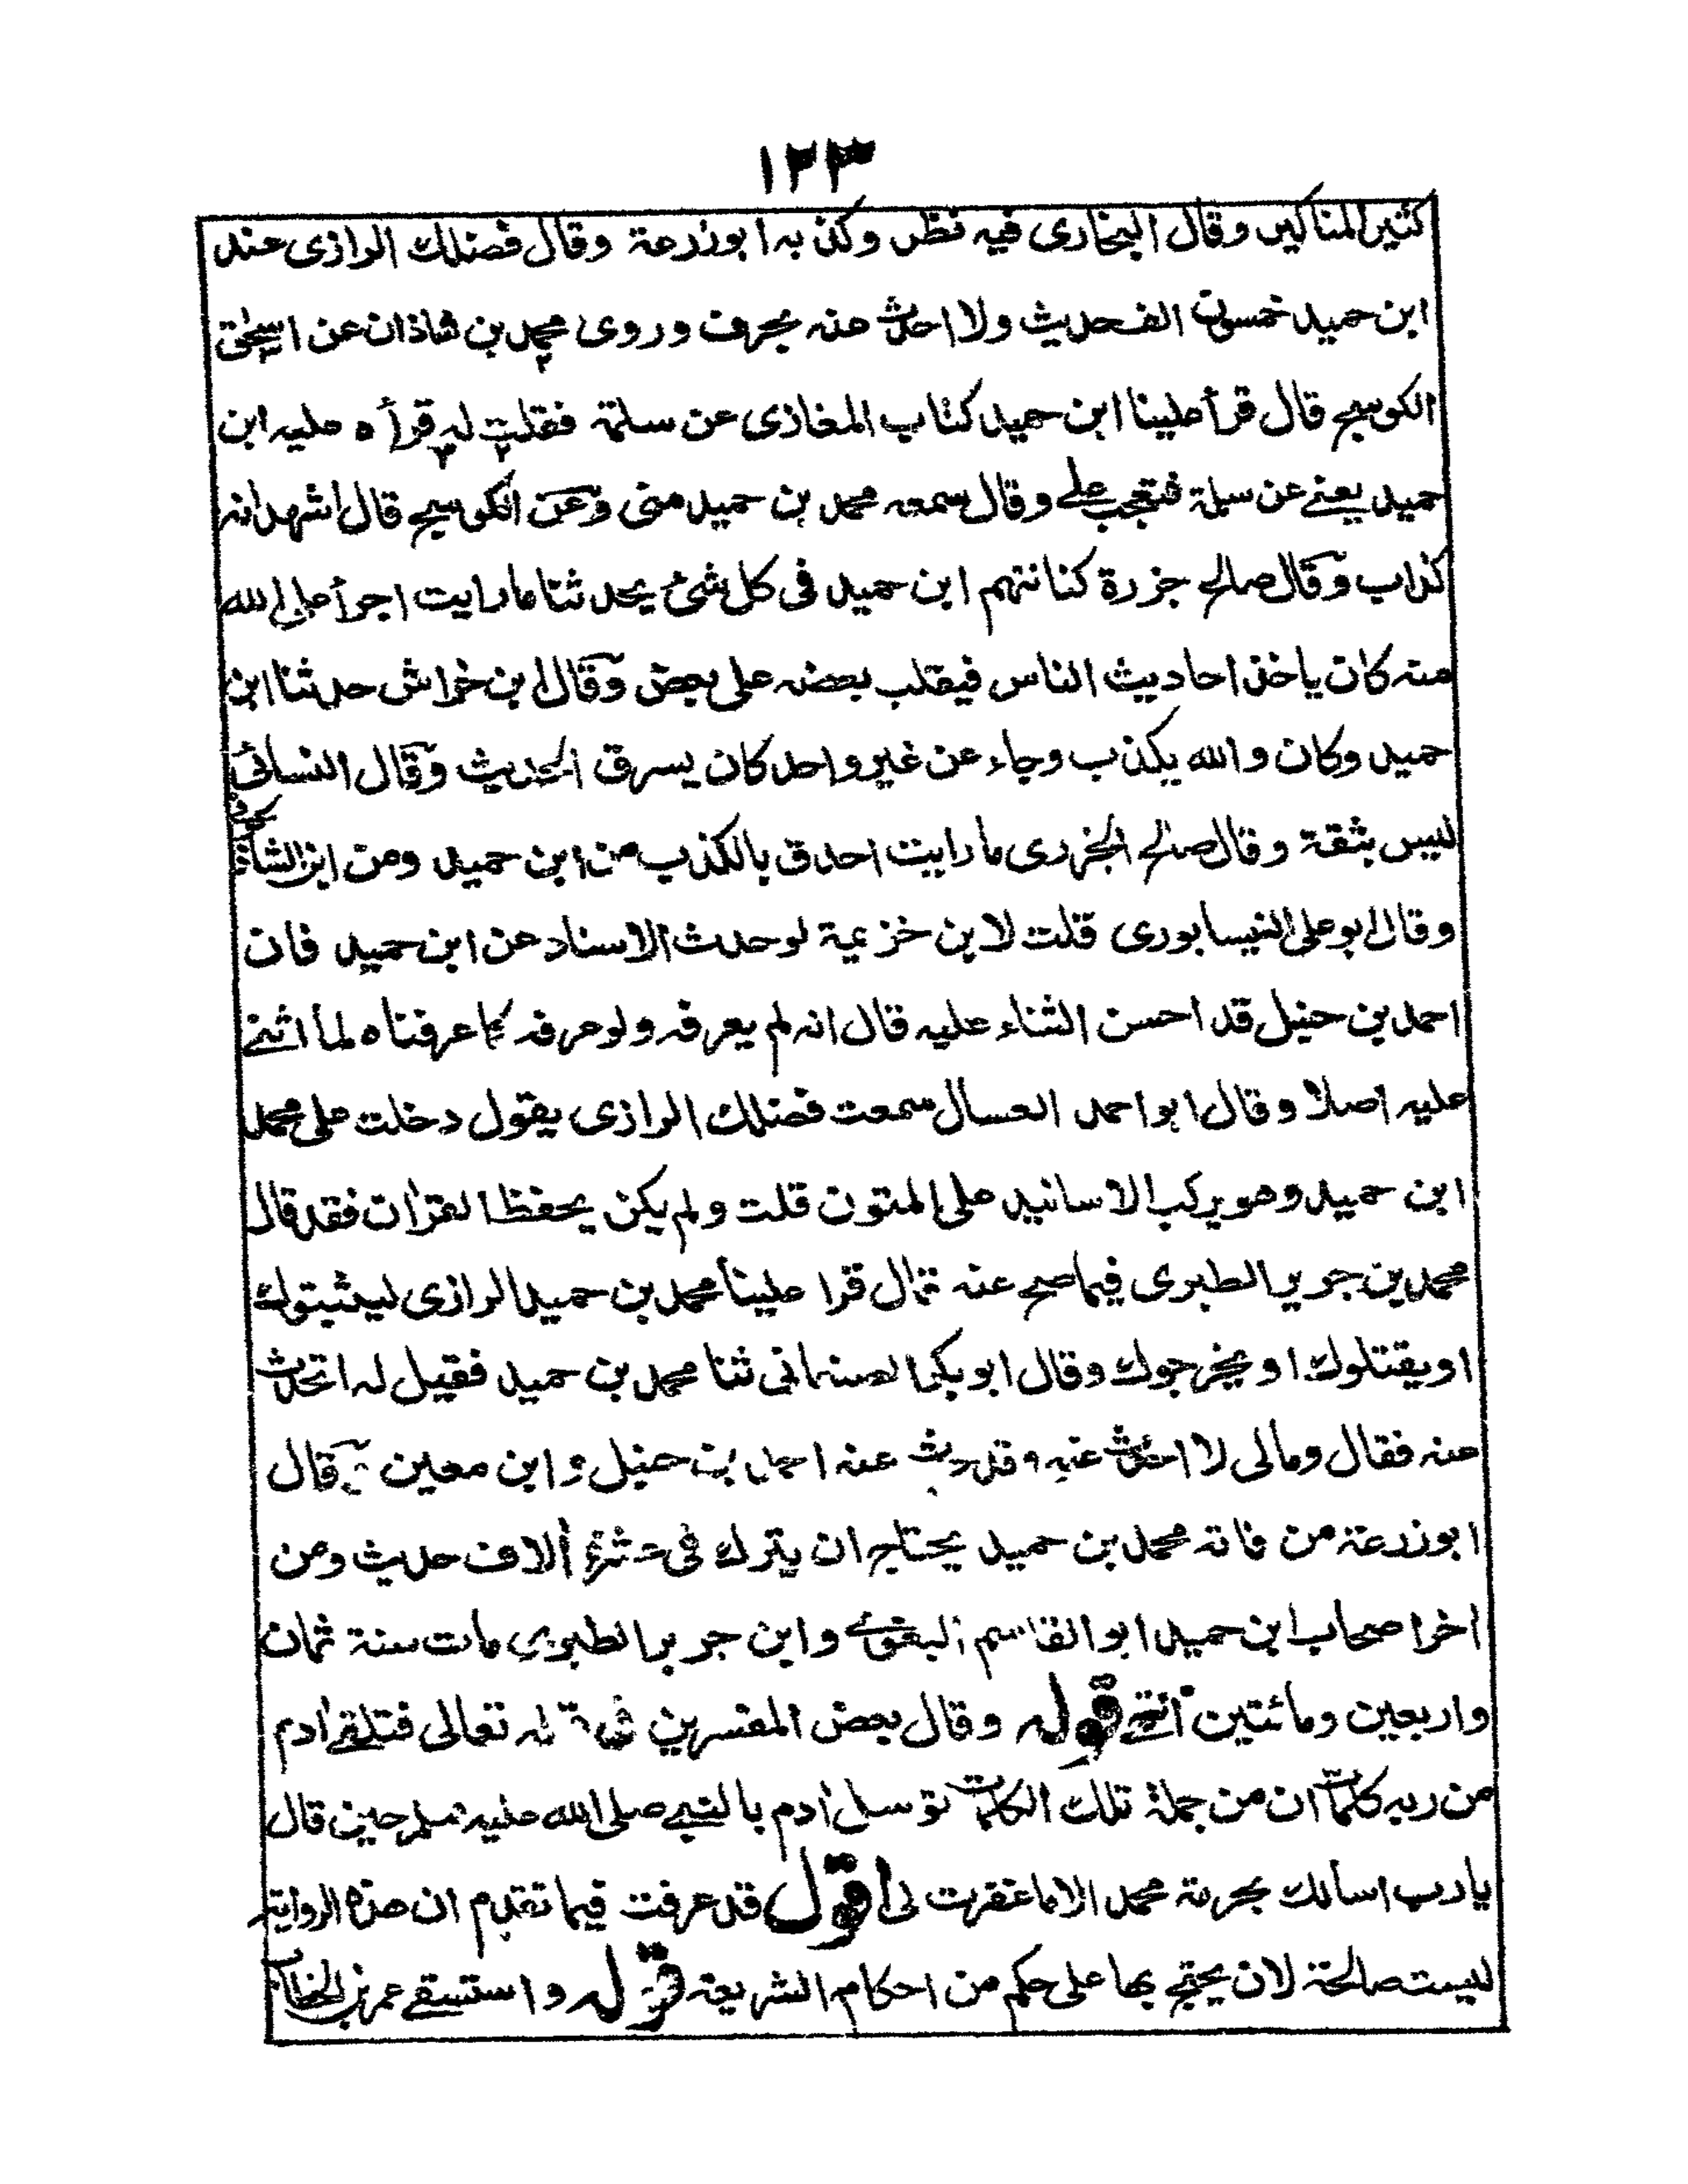 ١٢٣
كثير المناكير وقال البخاري فيه نظر وكذبه ابوزرعة وقال فضلك الرازي عند
ابن حميد خمسون الف حديث ولا احدث عنه بحرف وروى محمد بن شاذان عن اسحٰق
الكوسج قال قرأ علينا ابن حميد كتاب المغازى عن سلمة فقلت له قرأه عليه ابن
حميد يعنے عن سلمة فتعجب علے وقال سمعه محمد بن حميد منى وعن الكوسج قال اشهد انه
كذاب وقال صالح جزرة كنا نتهم ابن حميد فى كل شئ يحدثنا مارايت اجرأ على الله
منه كان ياخذ احاديث الناس فيقلب بعضه على بعض وقال ابن خراش حدثنا ابن
حميد وكان والله يكذب وجاء عن غير واحد كان يسرق الحديث وقال النسائى
ليس بثقة وقال صالح الجزرى مارايت احدق بالكذب من ابن حميد ومن ابن الشاذكونى
وقال ابوعلى النيسابورى قلت لابن خزيمة لو حدث الاسناد عن ابن حميد فان
احمد بن حنبل قد احسن الثناء عليه قال انه لم يعرفه ولو عرفه كما عرفناه لما اثنے
عليه اصلا وقال ابو احمد العسال سمعت فضلك الرازى يقول دخلت على محمد
ابن حميد وهو يركب الاسانيد على المتون قلت ولم يكن يحفظ القرٰان فقد قال
محمد بن جرير الطبرى فيما صح عنه قال قرا علينا محمد بن حميد الرازى ليثبتوك
او يقتلوك او يخرجوك وقال ابو بكر الصنعانى ثنا محمد بن حميد فقيل له اتحدث
عنه فقال ومالى لا احدث عنه وقد حدث عنه احمد بن حنبل وابن معين قال
ابوزرعة من فاته محمد بن حميد يحتاج ان يترك فى عشرة ألاف حديث ومن
اخر اصحاب ابن حميد ابو القاسم البغوے وابن جرير الطبرى مات سنة ثمان
واربعين ومائتين انتهے قوله وقال بعض المفسرين فى قوله تعالى فتلقے اٰدم
من ربه كلمات ان من جملة تلك الكلمات توسل اٰدم بالنبے صلى الله عليه وسلم حين قال
يارب اسالك بحرمة محمد الا ما غفرت لى اقول قد عرفت فيما تقدم ان هذه الرواية
ليست صالحة لان يحتج بها على حكم من احكام الشريعة قوله واستسقے عمر بن الخطاب